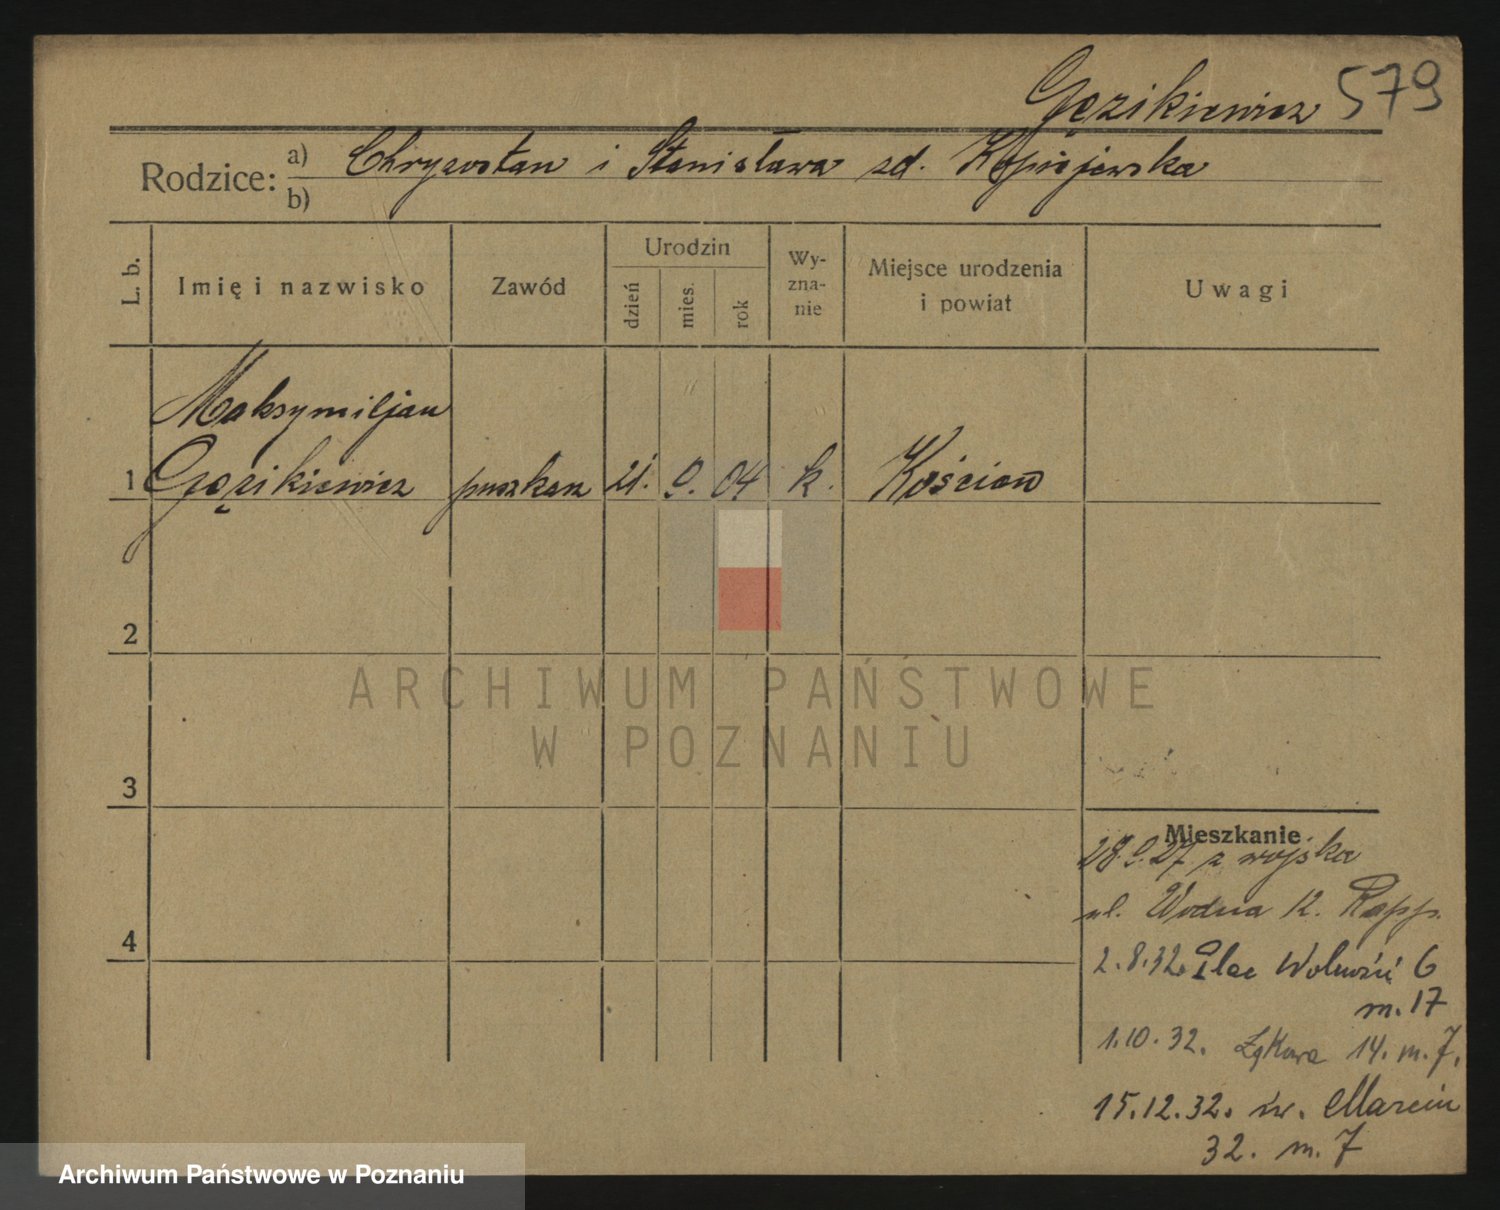 Gęzikiewicz 579
Rodzice: a) Chryzostan i Stanisława zd.
b)
L. b. Imię i nazwisko Zawód Urodzin dzień mies. rok Wyznanie Miejsce urodzenia i powiat Uwagi
Maksymiljan
1 Gęzikiewicz puszkarz 21. 9. 04 k. Kościan
2
ARCHIWUM PAŃSTWOWE
W POZNANIU
3
Mieszkanie
28.9.27 z wojska
ul. Wodna 12.
4
2.8.32. Plac Wolności 6
m. 17
1.10.32. Łąkowa 14. m. 7.
15.12.32. św. Marcin
32. m. 7
Archiwum Państwowe w Poznaniu